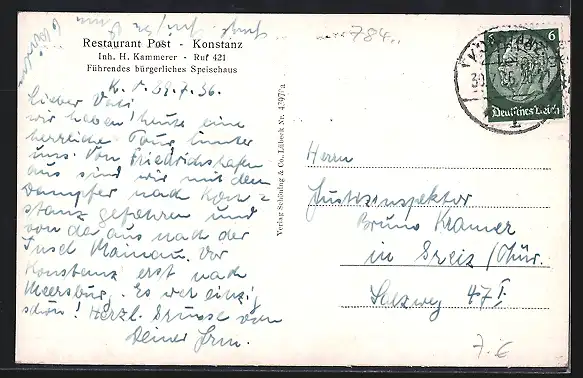 784
Restaurant Post - Konstanz
Inh. H. Kammerer - Ruf 421
Führendes bürgerliches Speisehaus
K. 29.7.36.
Lieber Vati
wir haben heute eine
herrliche Tour hinter
uns. Von Friedrichshafen
aus sind wir mit dem
Dampfer nach Kon-
stanz gefahren und
von da aus nach der
Insel Mainau. Vor
Konstanz erst nach
Meersburg. Es war einzig
schön! Herzl. Grüsse von
Deiner Irm.
Verlag Schöning & Co., Lübeck Nr. 4797/a
6
Deutsches Reich
Herrn
Justizinspektor
Bruno Kramer
in Greiz /Thür.
Salzweg 47 I.
7.6